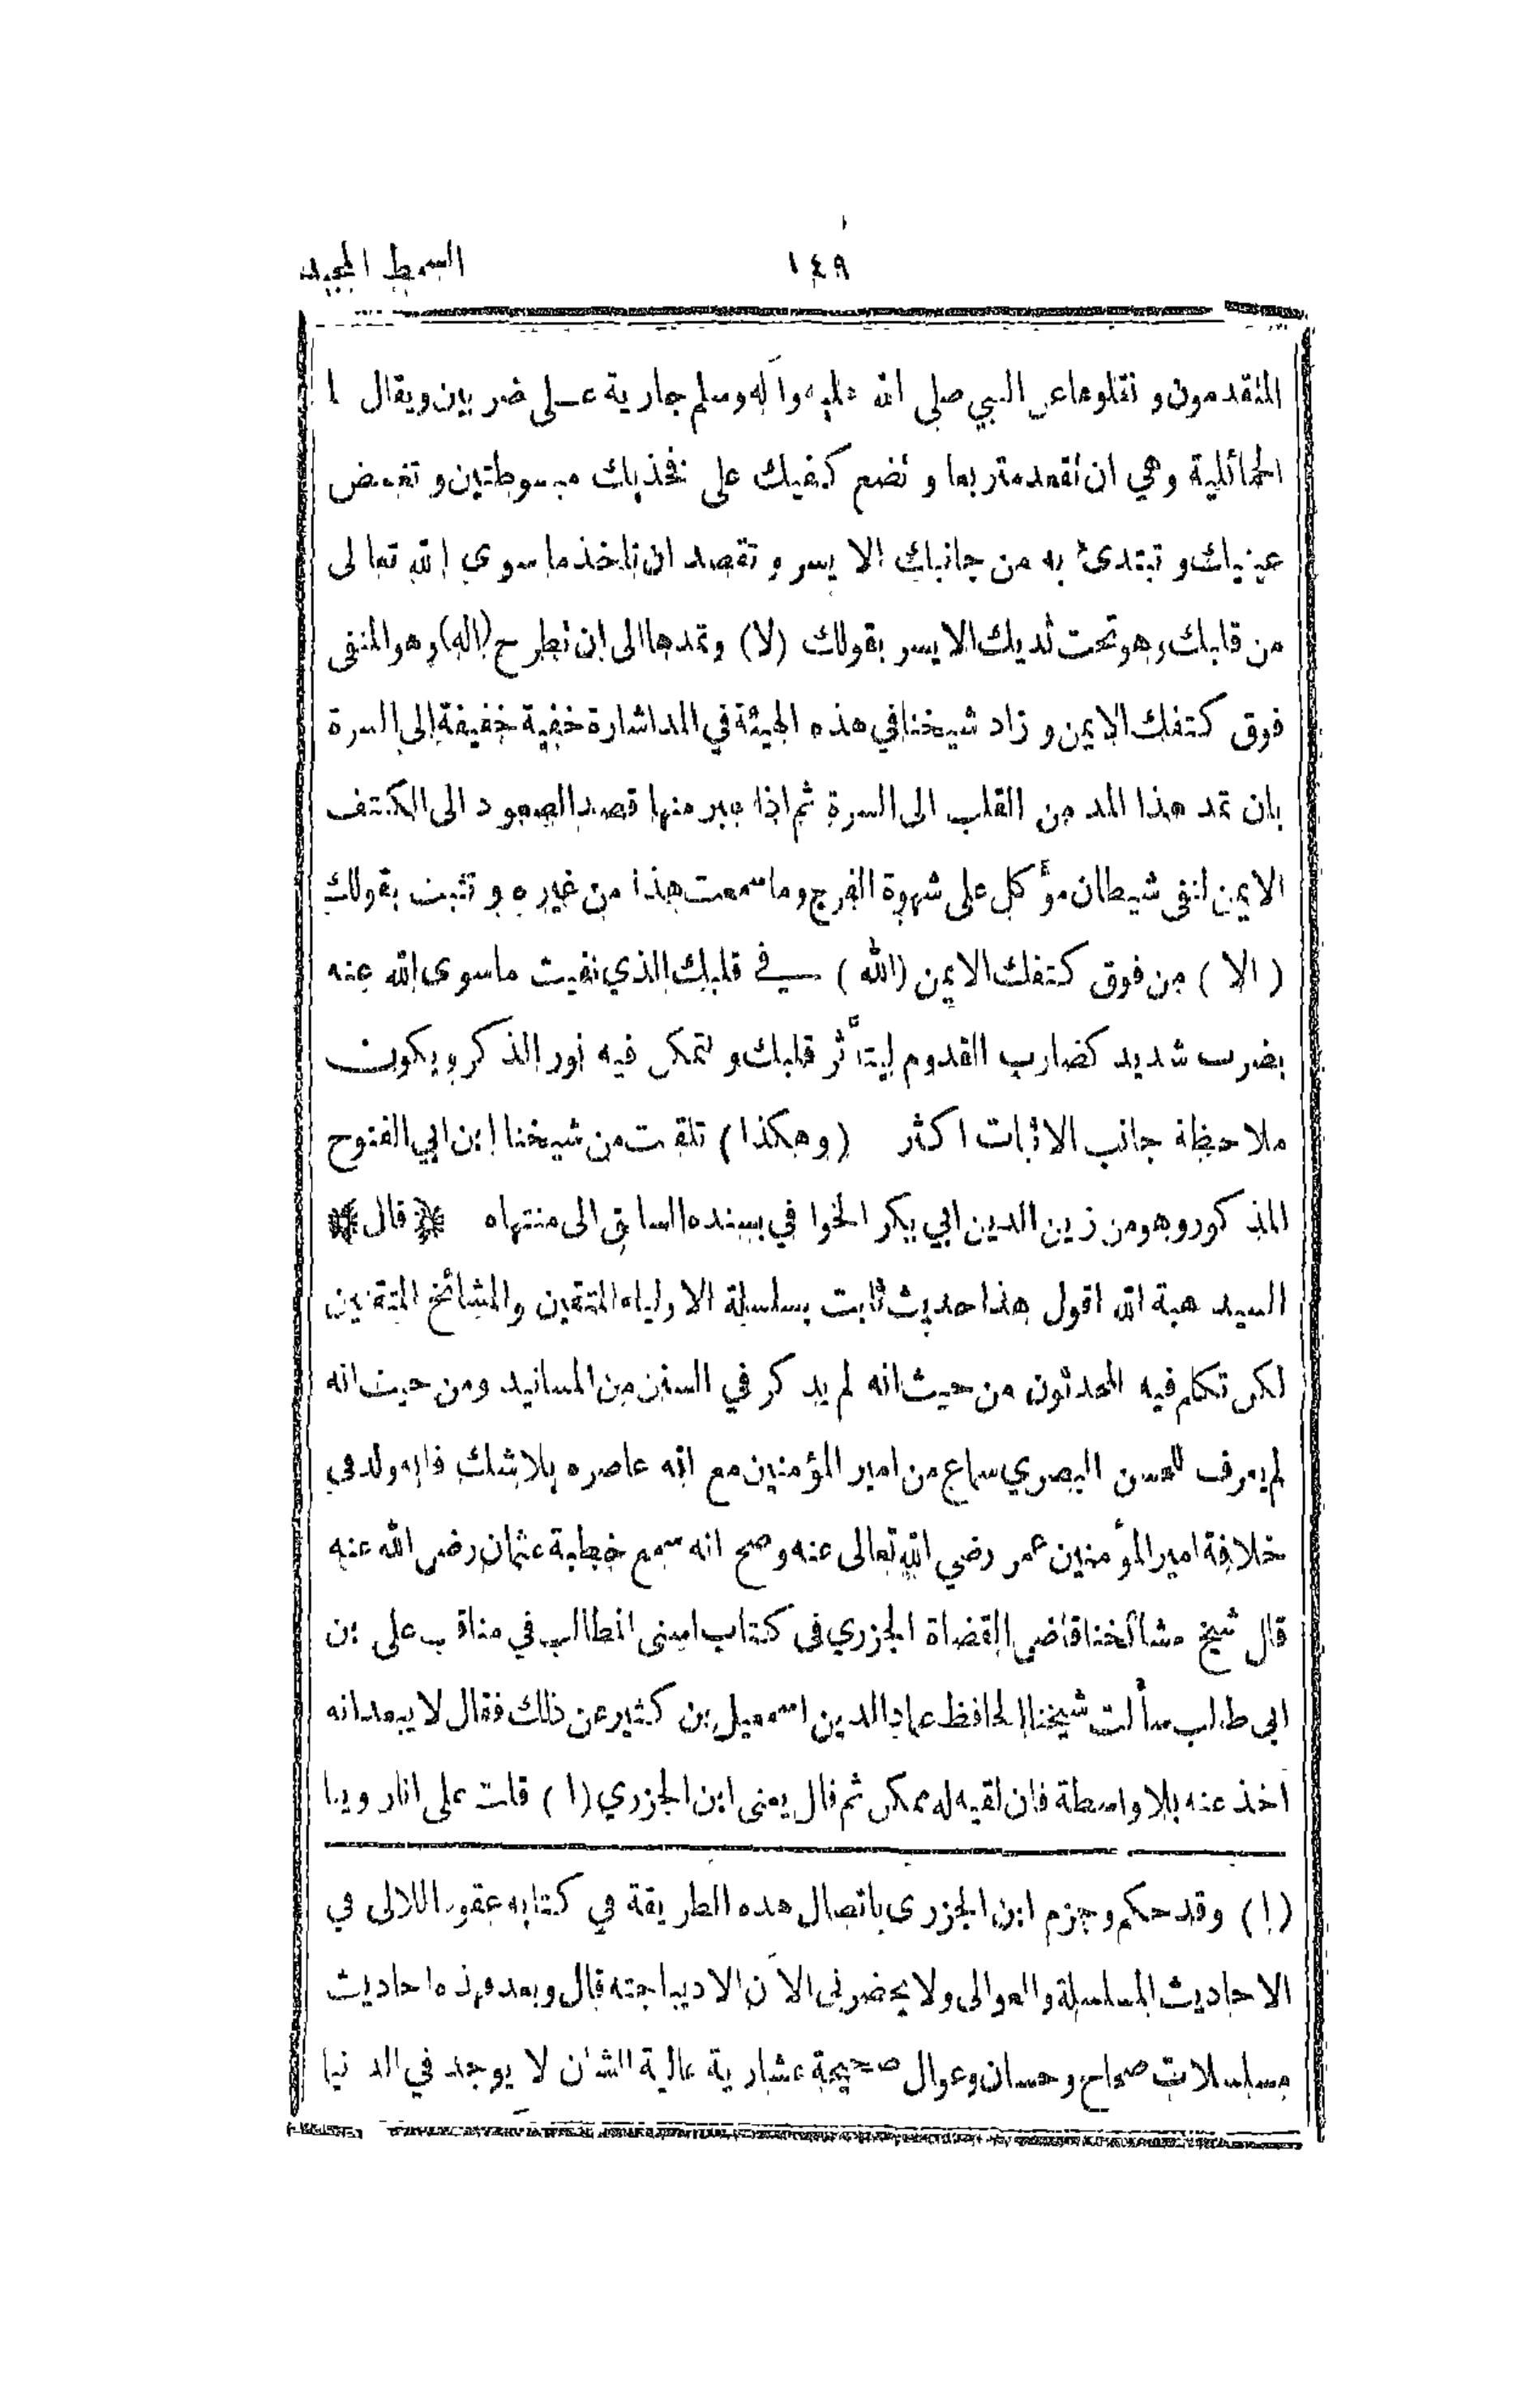 ١٤٩ السمط المجيد
المتقدمون و نقلوها عن النبي صلى الله عليه وآله وسلم جارية على ضربين ويقال لها
الحمائلية وهي ان تقعد متربعا و تضع كفيك على فخذيك مبسوطتين و تغمض
عينيك و تبتدئ به من جانبك الا يسر و تقصد ان تاخذ ما سوى الله تعالى
من قلبك وهو تحت ثديك الايسر بقولك (لا) وتمدها الى ان تطرح (اله) وهو المنفى
فوق كتفك الايمن و زاد شيخنا في هذه الهيئة في المد اشارة خفية خفيفة الى السرة
بان تمد هذا المد من القلب الى السرة ثم اذا عبر منها قصد الصعود الى الكتف
الايمن لنفى شيطان مؤكل على شهوة الفرج وما سمعت هذا من غيره و تثبت بقولك
( الا ) من فوق كتفك الايمن (الله ) في قلبك الذي نفيت ماسوى الله عنه
بضرب شديد كضارب القدوم ليتأثر قلبك و لتمكن فيه نور الذكر ويكون
ملاحظة جانب الاثبات اكثر (وهكذا) تلقيت من شيخنا ابن ابي الفتوح
المذكور وهو من زين الدين ابي بكر الخوافي بسنده السابق الى منتهاه ﴿قال﴾
السيد هبة الله اقول هذا حديث ثابت بسلسلة الاولياء المتقين والمشائخ المتقنين
لكن تكلم فيه المحدثون من حيث انه لم يذكر في السنن من المسانيد ومن حيث انه
لم يعرف للحسن البصري سماع من امير المؤمنين مع انه عاصره بلاشك فانه ولد في
خلافة امير المؤمنين عمر رضي الله تعالى عنه وصح انه سمع خطبة عثمان رضى الله عنه
قال شيخ مشائخنا قاضى القضاة الجزري فى كتاب اسنى المطالب في مناقب على بن
ابى طالب سألت شيخنا الحافظ عماد الدين اسمعيل بن كثير عن ذلك فقال لا يبعد انه
اخذ عنه بلا واسطة فان لقيه له ممكن ثم قال يعنى ابن الجزري (١) قلت على انا روينا
(١) وقد حكم وجزم ابن الجزرى باتصال هذه الطريقة في كتابه عقود اللالى في
الاحاديث المسلسلة والعوالى ولا يحضرنى الآن الا ديباجته قال وبعد فهذه احاديث
مسلسلات صحاح وحسان وعوال صحيحة عشارية عالية الشان لا يوجد في الدنيا